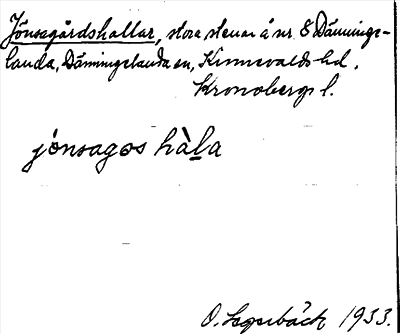 Jönsagårdshallar, stora stenar å nr 8 Dännings-
landa, Dänningelanda sn, Kinnevalds hd.
Kronobergs l.
jónsagos hàla
O. 1933.